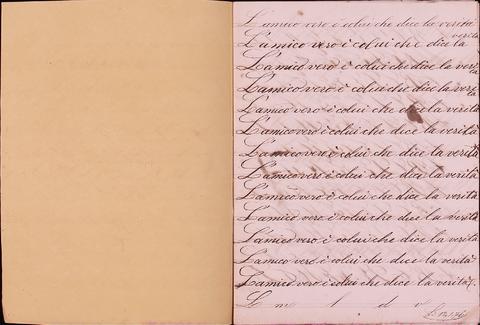 L'amico vero è colui che dice la verità
L'amico vero è colui che dice la verità
L'amico vero è colui che dice la verità
L'amico vero è colui che dice la verità
L'amico vero è colui che dice la verità
L'amico vero è colui che dice la verità
L'amico vero è colui che dice la verità
L'amico vero è colui che dice la verità
L'amico vero è colui che dice la verità
L'amico vero è colui che dice la verità
L'amico vero è colui che dice la verità
L'amico vero è colui che dice la verità
L'amico vero è colui che dice la verità.
L m l d v